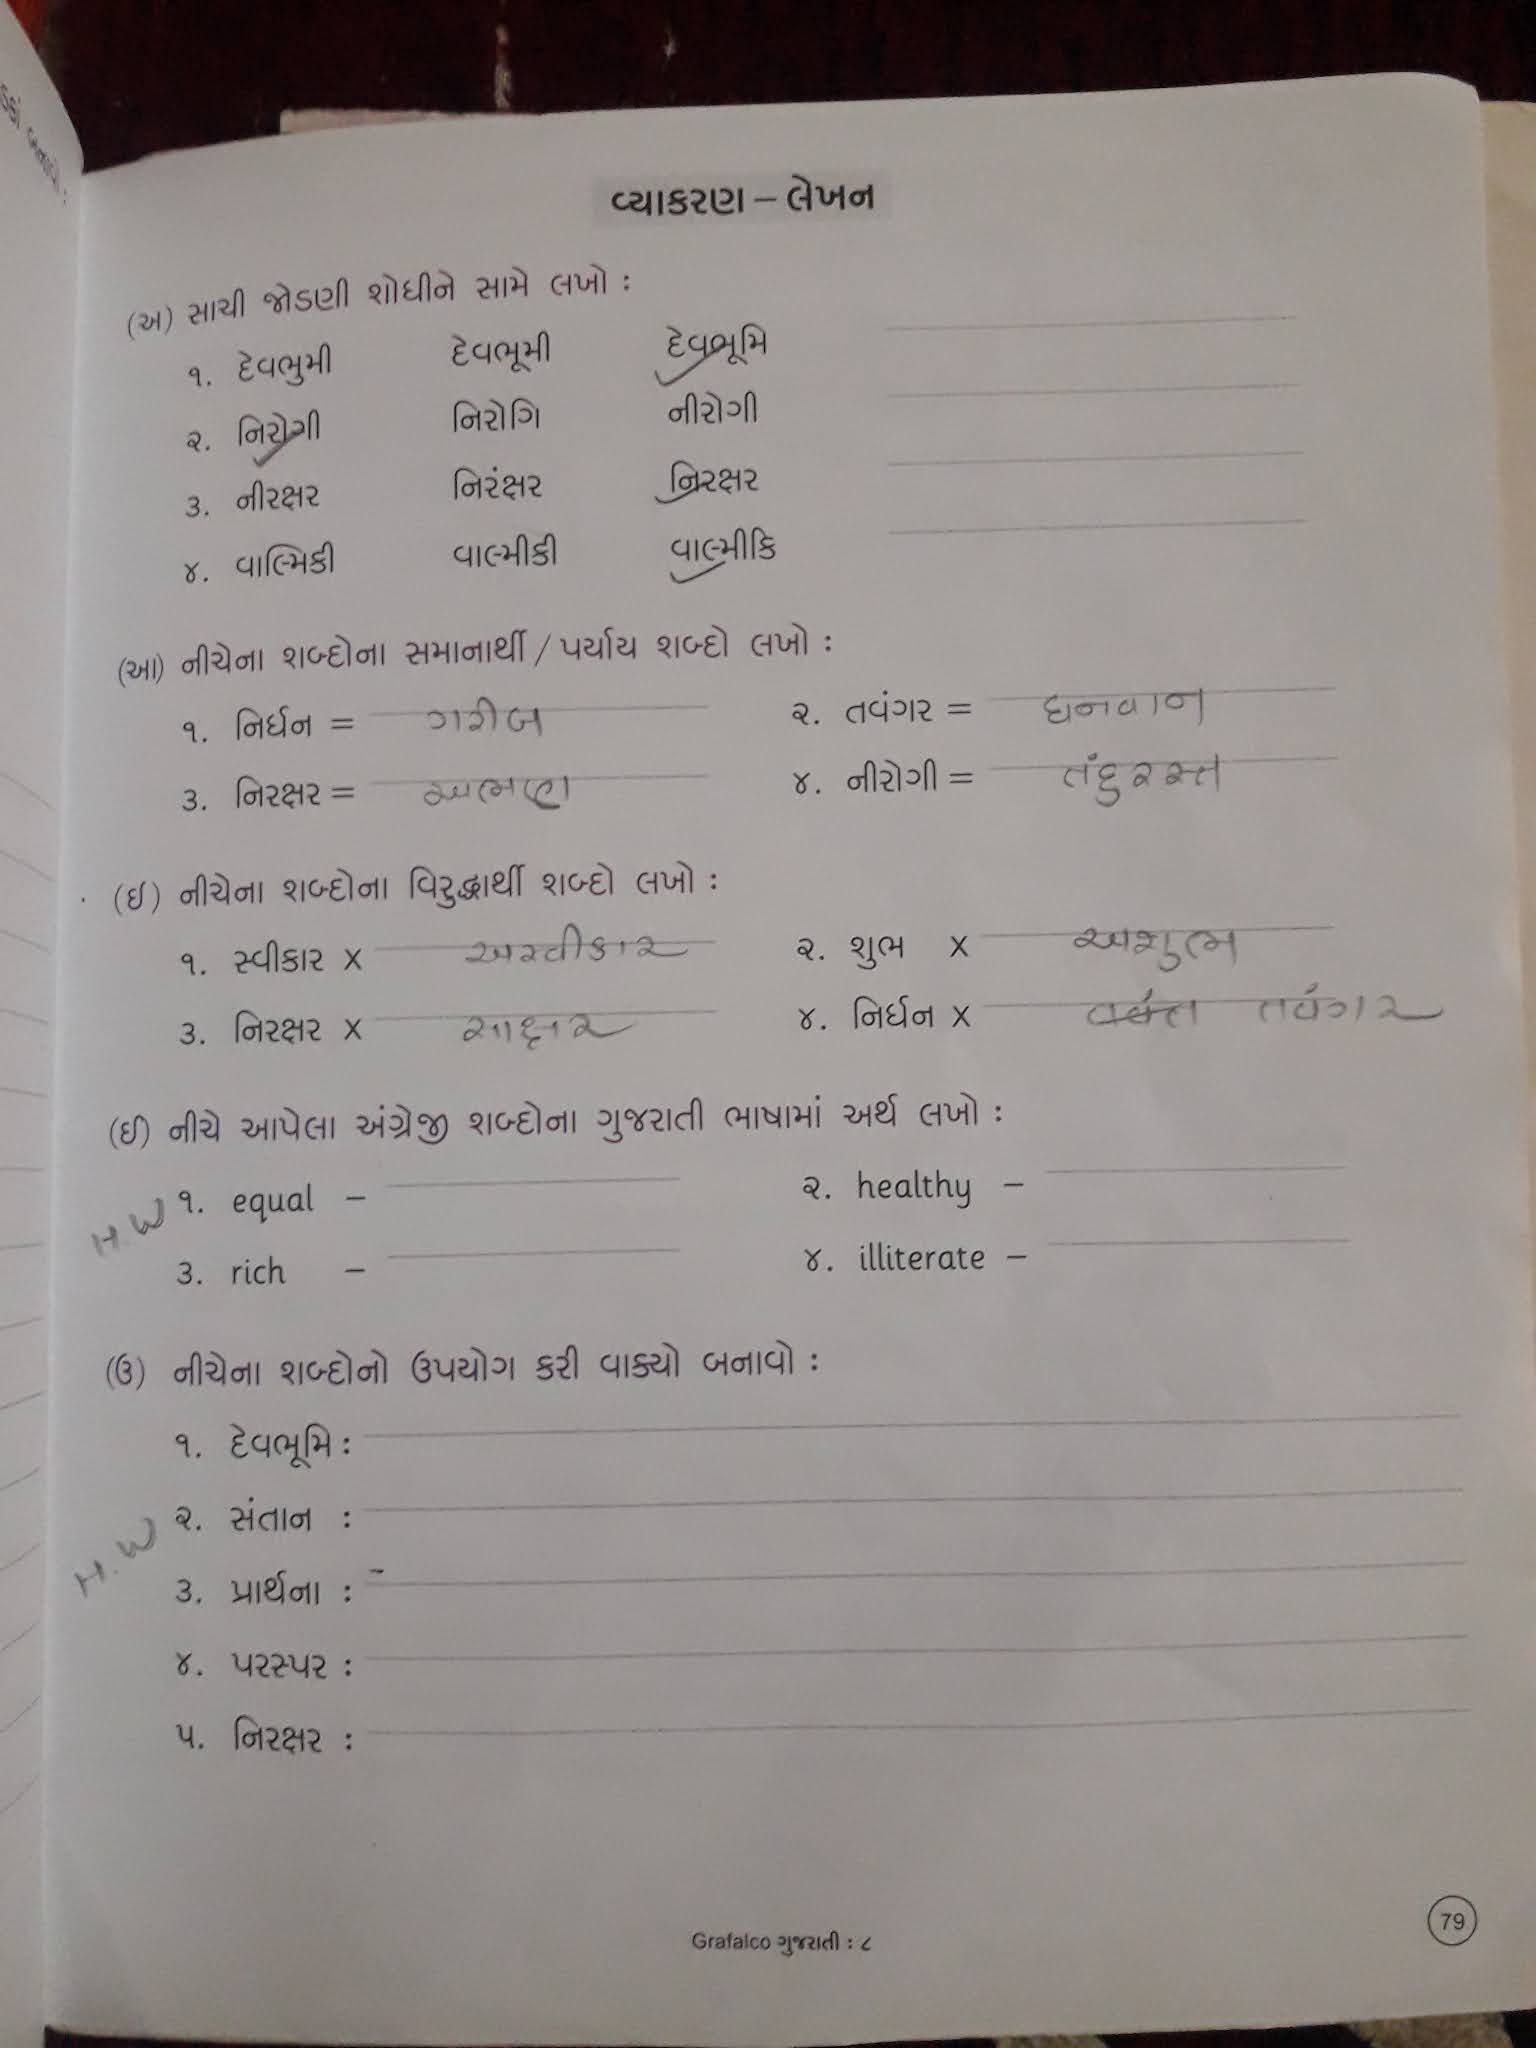 વ્યાકરણ – લેખન
(અ) સાચી જોડણી શોધીને સામે લખો :
૧. દેવભુમી દેવભૂમી દેવભૂમિ
૨. નિરોગી નિરોગિ નીરોગી
૩. નીરક્ષર નિરંક્ષર નિરક્ષર
૪. વાલ્મિકી વાલ્મીકી વાલ્મીકિ
(આ) નીચેના શબ્દોના સમાનાર્થી / પર્યાય શબ્દો લખો :
૧. નિર્ધન = ગરીબ ૨. તવંગર = ધનવાન
૩. નિરક્ષર = અભણ ૪. નીરોગી = તંદુરસ્ત
(ઇ) નીચેના શબ્દોના વિરુદ્ધાર્થી શબ્દો લખો :
૧. સ્વીકાર × અસ્વીકાર ૨. શુભ × અશુભ
૩. નિરક્ષર × સાક્ષર ૪. નિર્ધન × તવંગર
(ઈ) નીચે આપેલા અંગ્રેજી શબ્દોના ગુજરાતી ભાષામાં અર્થ લખો :
H.W ૧. equal – ૨. healthy –
૩. rich – ૪. illiterate –
(ઉ) નીચેના શબ્દોનો ઉપયોગ કરી વાક્યો બનાવો :
૧. દેવભૂમિ :
H.W ૨. સંતાન :
૩. પ્રાર્થના :
૪. પરસ્પર :
૫. નિરક્ષર :
Grafalco ગુજરાતી : ૮
79